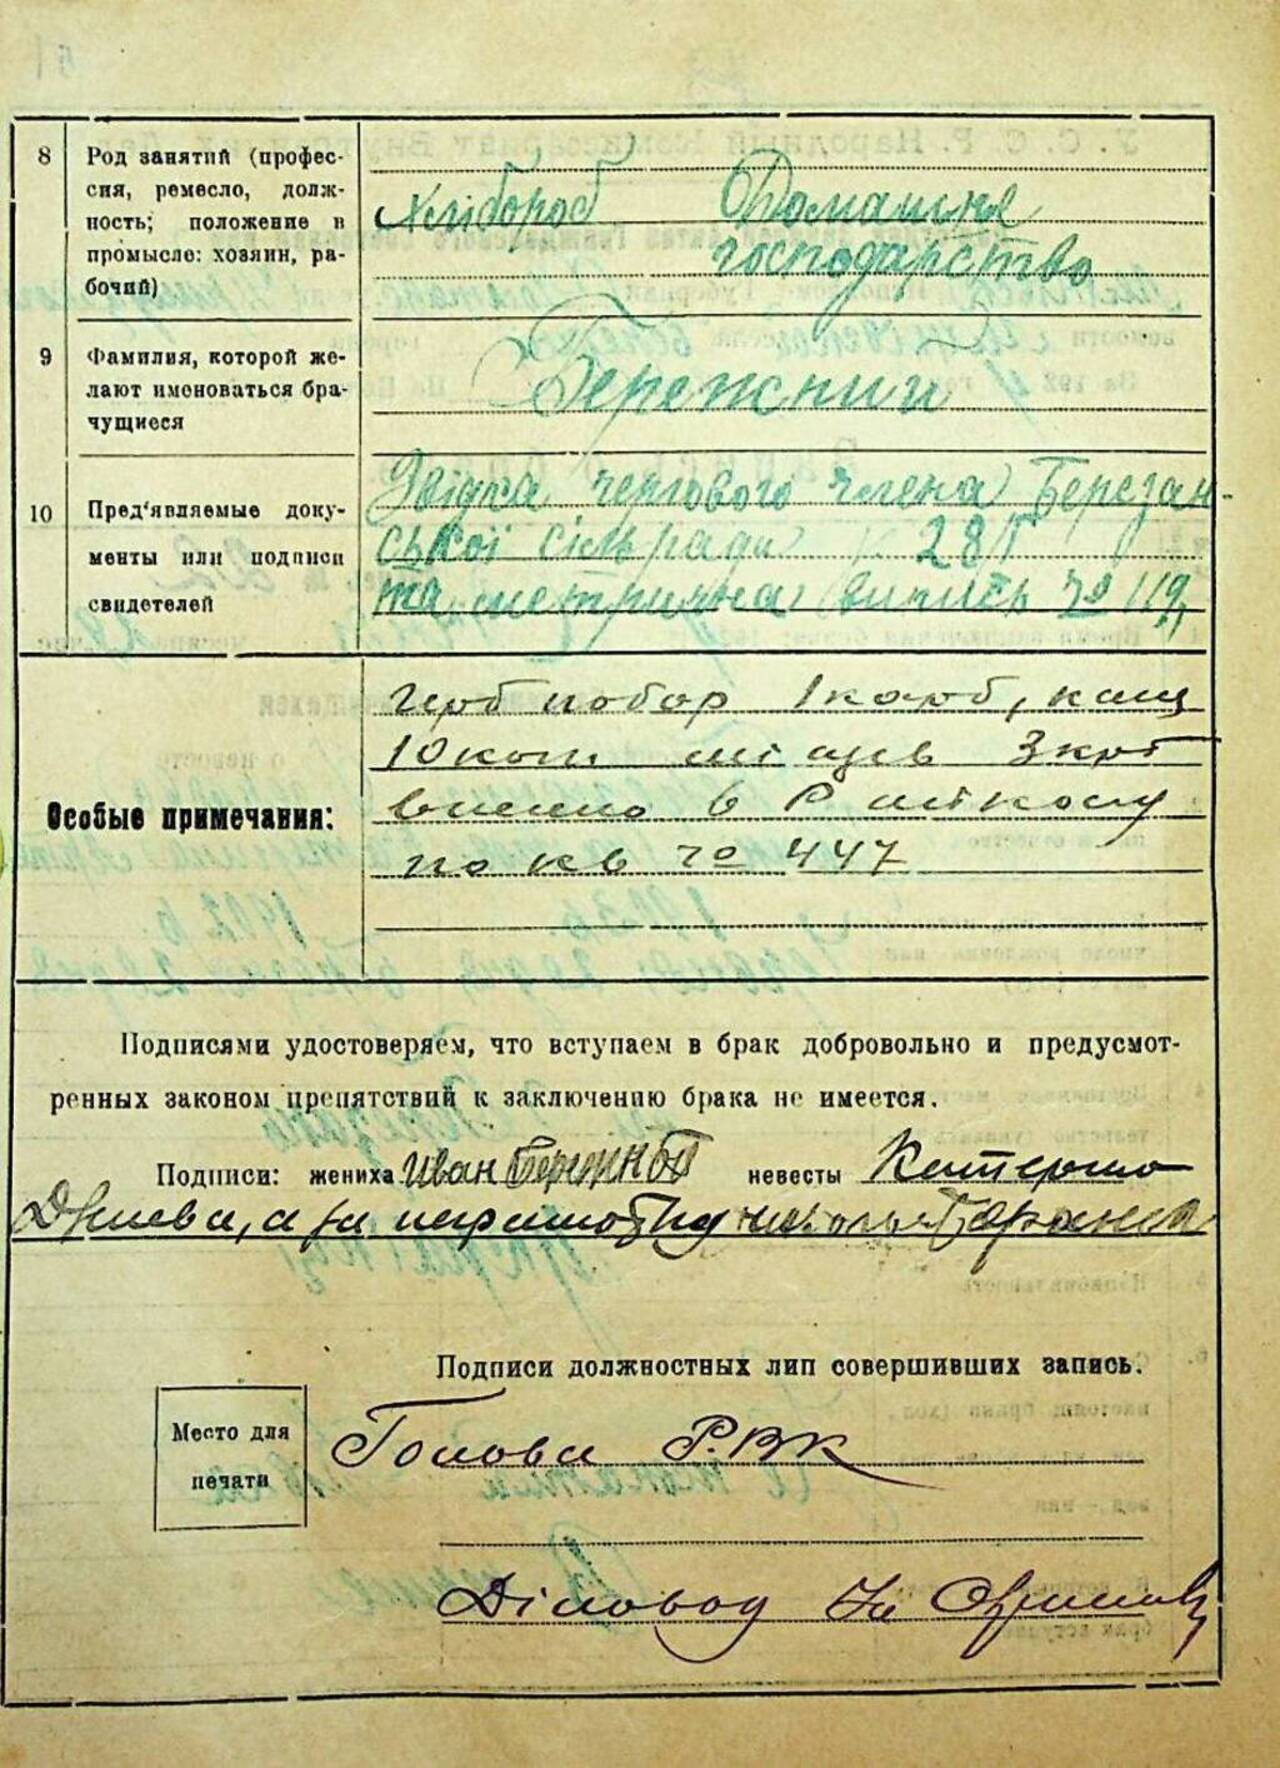 8 Род занятий (профес-
сия, ремесло, долж-
ность; положение в
промысле: хозяин, ра-
бочий)
Хлібороб Домашнє
господарство
9 Фамилия, которой же-
лают именоваться бра-
чущиеся
Бережний
10 Пред'являемые доку-
менты или подписи
свидетелей
чергового члена Березан-
ської сільради
та метрична випись № 119
Особые примечания:
Герб побор 1 карб, канц
10 коп місцев 3 крб
внесено в Р міськасу
по кв № 447
Подписями удостоверяем, что вступаем в брак добровольно и предусмот-
ренных законом препятствий к заключению брака не имеется.
Подписи: жениха Иван невесты Катерина
а за неграмотну
Подписи должностных лиц совершивших запись.
Место для
печати
Голова РВК
Діловод